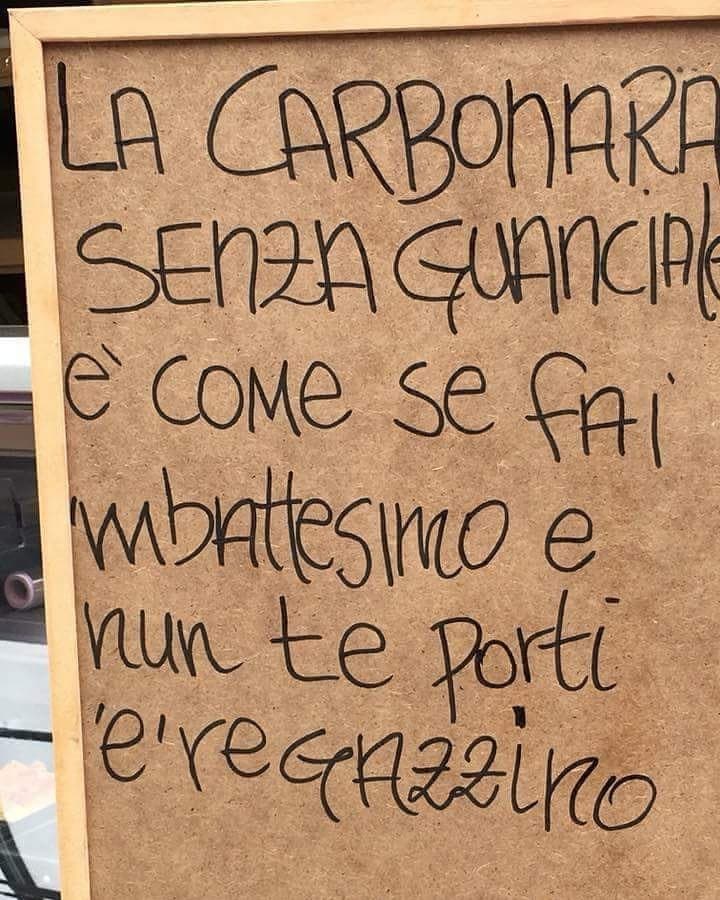 LA CARBONARA
SENZA GUANCIALE
e' COME se fAi
'mbAttesimo e
nun te porti
'e'reGAZZino